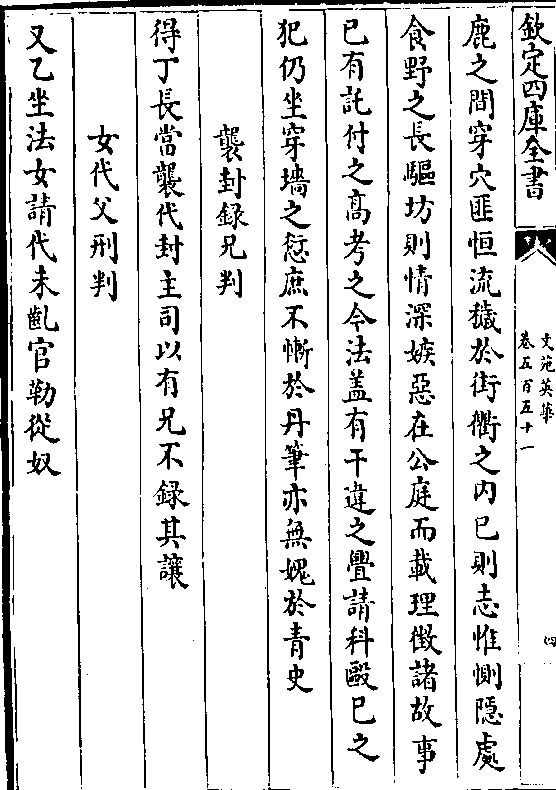 欽定四庫全書
文苑英華
卷五百五十一
四
鹿之間穿穴匪恒流穢於街衢之内已則志惟惻隱處
食野之長驅坊則情深嫉惡在公庭而載理徵諸故事
已有託付之髙考之令法盖有干違之舋請科毆已之
犯仍坐穿墻之愆庶不慚於丹筆亦無媿於青史
襲封録兄判
得丁長當襲代封主司以有兄不録其讓
女代父刑判
又乙坐法女請代未齓官勒從奴